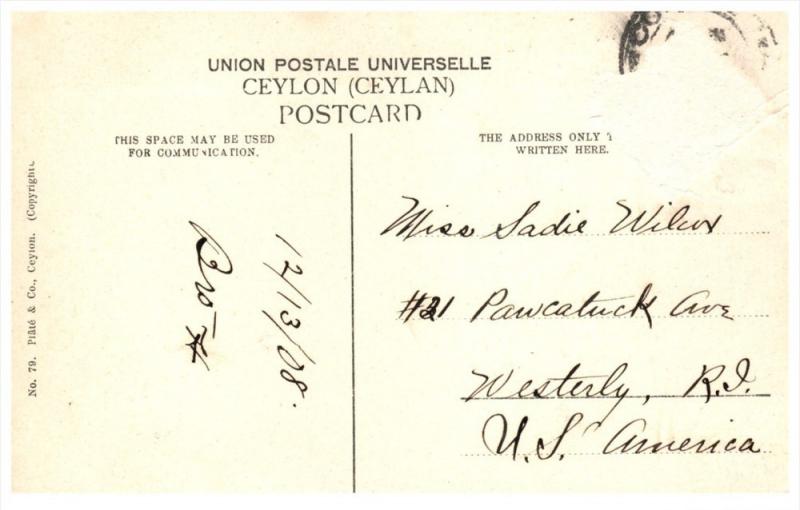 UNION POSTALE UNIVERSELLE
CEYLON (CEYLAN)
POSTCARD
THIS SPACE MAY BE USED
FOR COMMUNICATION.
THE ADDRESS ONLY
WRITTEN HERE.
No. 79. Plâté & Co., Ceylon. (Copyright.
12/13/08.
Miss Sadie Wilcox
#21 Pawcatuck Ave
Westerly, R.I.
U.S. America